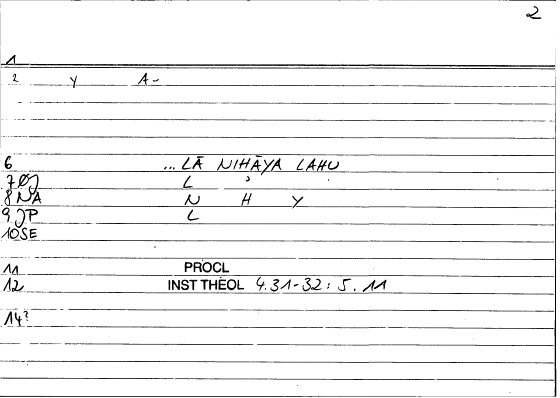 2
1
2 Y A-
6 ...LĀ NIHĀYA LAHU
7 L ʾ
8 NA N H Y
9 JP L
10 SE
11 PROCL
12 INST THEOL 4.31-32 : 5.11
14?